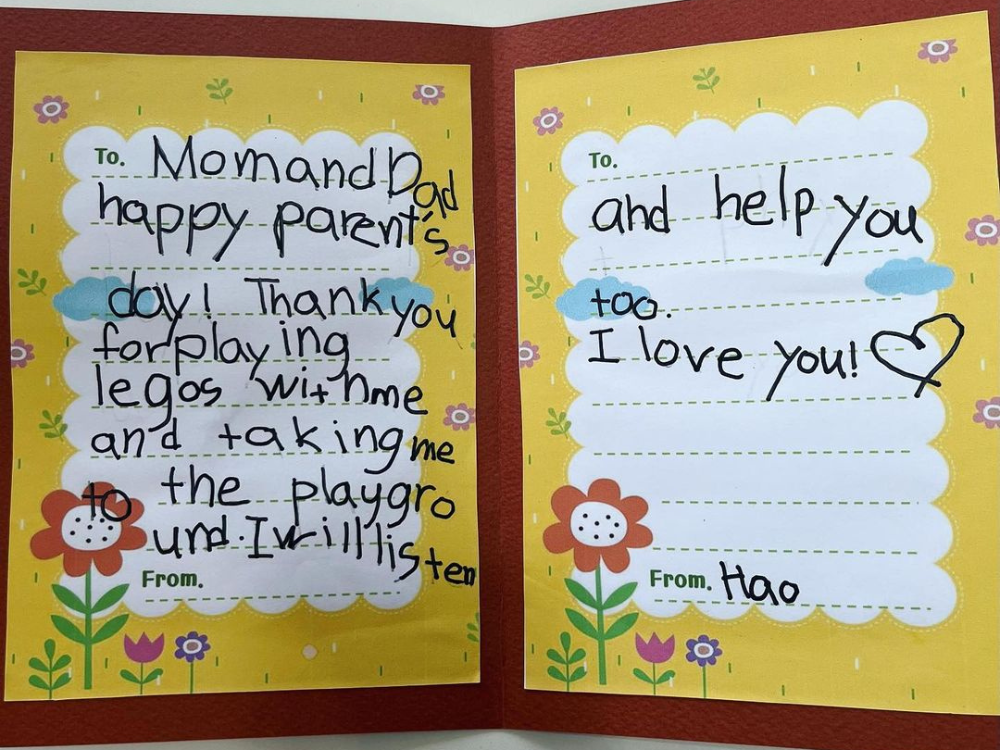 To. Mom and Dad
happy parent's
day! Thank you
for playing
legos with me
and taking me
to the playgro
und. I will listen
From.
To.
and help you
too.
I love you!
From. Hao